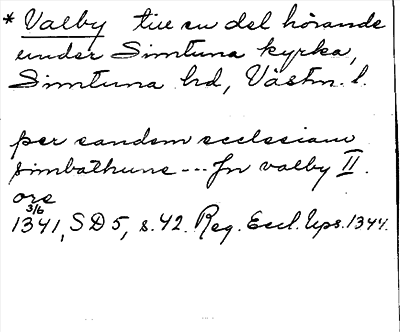 * Valby till en del hörande
under Simtuna kyrka,
Simtuna hd, Västm. l.
per eandem ecclesiam
simbathune --- jn valby II.
ore
3/6
1341, SD 5, s. 42. Reg. Eccl. Ups. 1344.